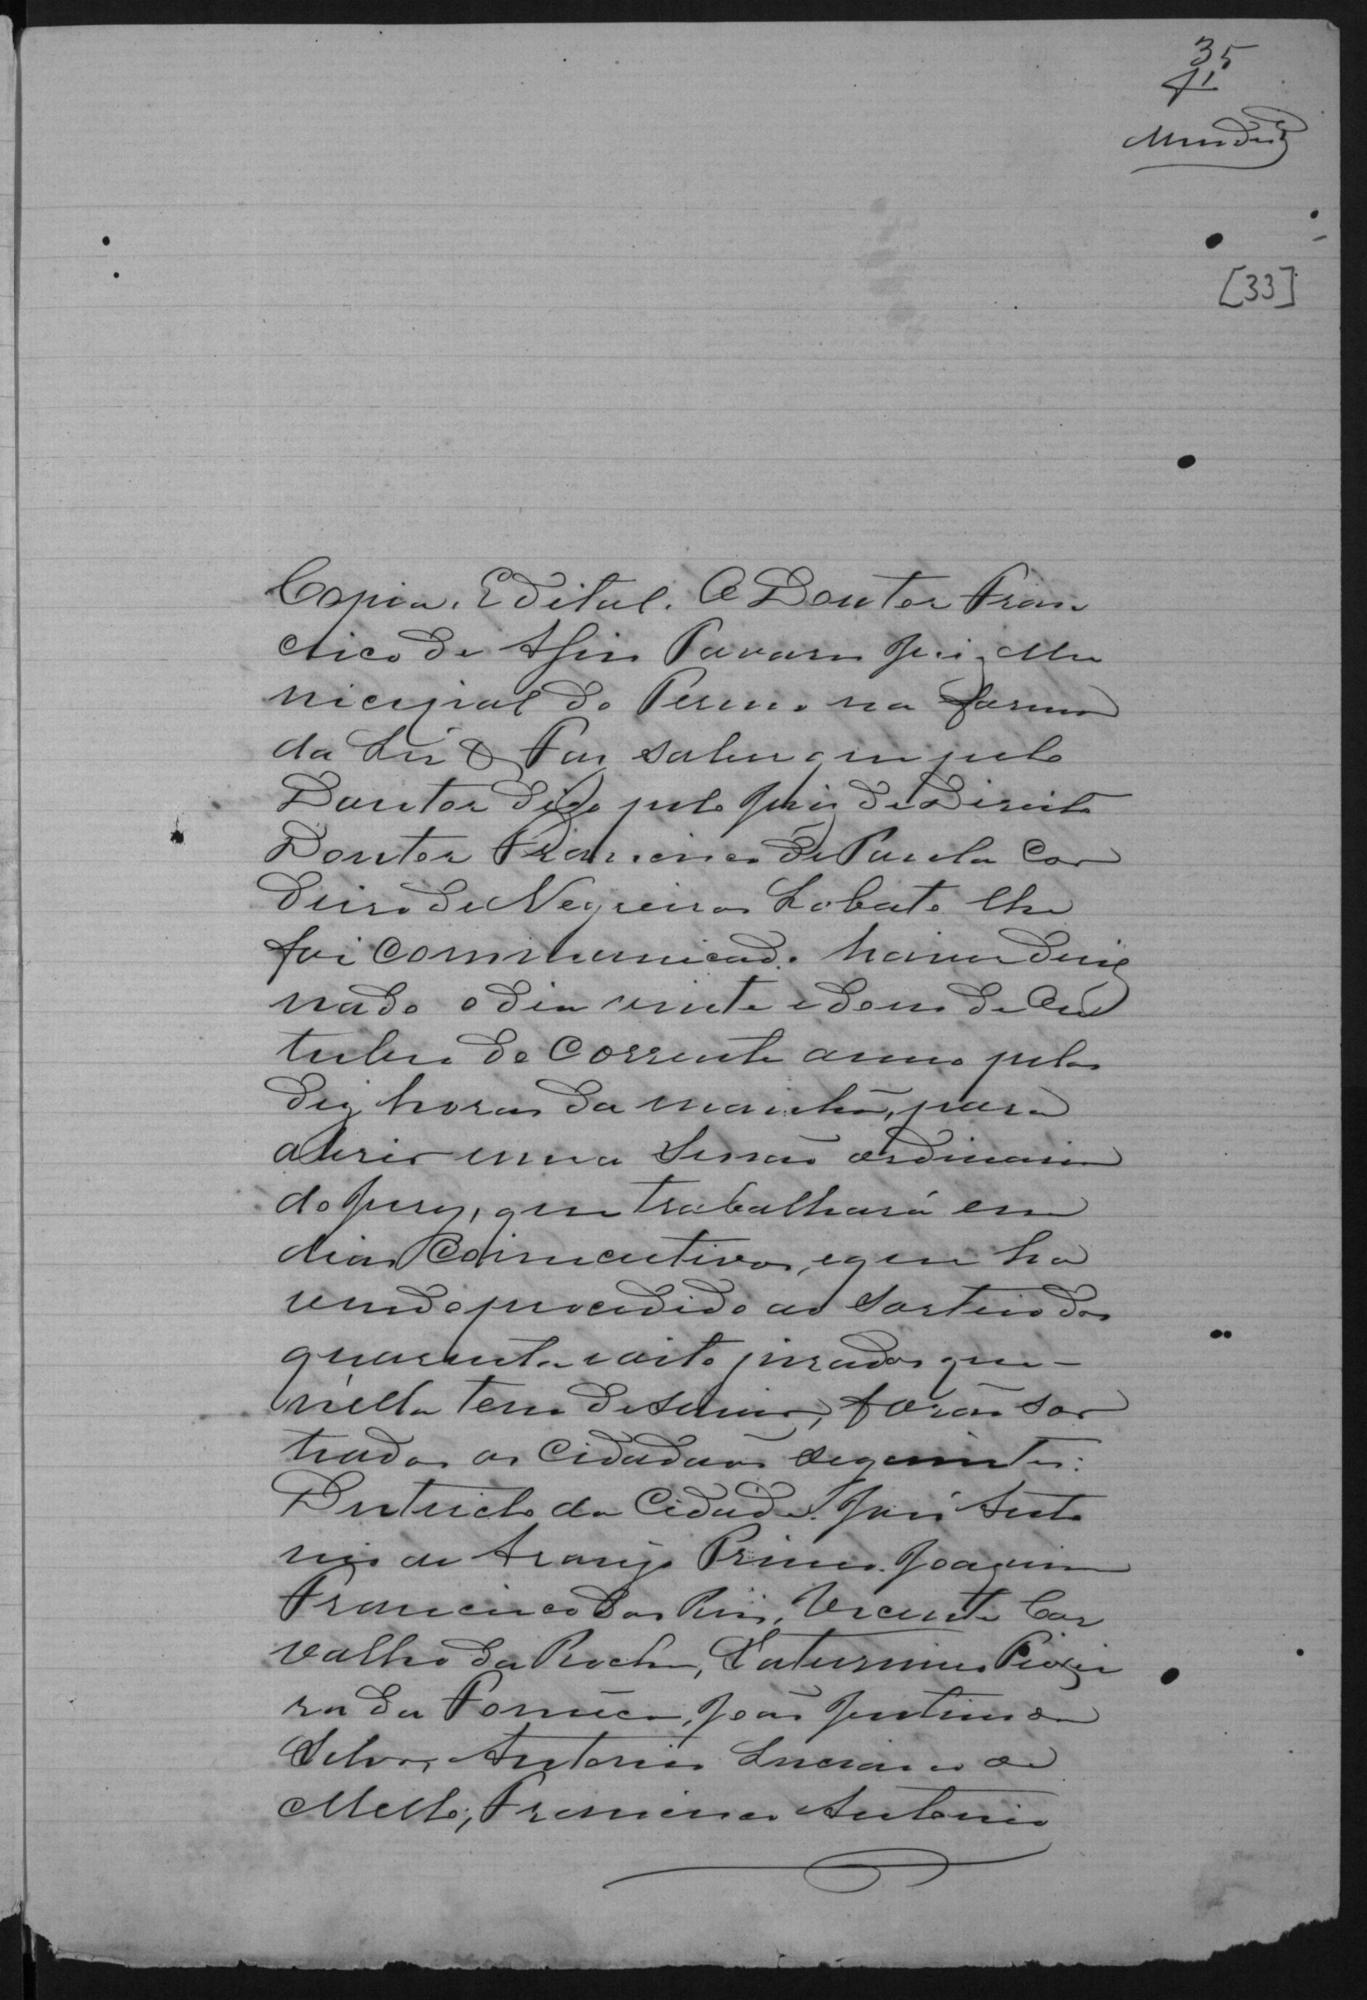 35
Mendes
[33]
Copia. Edital. O Doutor Fran
cisco de Assis Tavares Juiz Mu
nicipal do Termo na forma
da Lei & Faz saber que pelo
Doutor digo pelo Juiz de Direito
Doutor Francisco de Paula Cor
deiro de Negreiros Lobato lhe
foi communicado haver desig
nado o dia vinte e dous de Ou
tubro do corrente anno pelas
dez horas da manhã, para
abrir uma Sessão ordinaria
do Jury, que trabalhará em
dias consecutivos, e que ha
vendo procedido ao sorteio dos
quarenta e oito jurados que
n'ella tem de servir, forão sor
teados os Cidadãos seguintes:
Districto da Cidade. José Anto
nio de Araujo Primo. Joaquim
Francisco dos Reis, Vicente Car
valho da Rocha, Saturnino Pirei
ra da Fonseca, João Justino da
Silva, Antonio Luciano de
Mello, Francisco Antonio